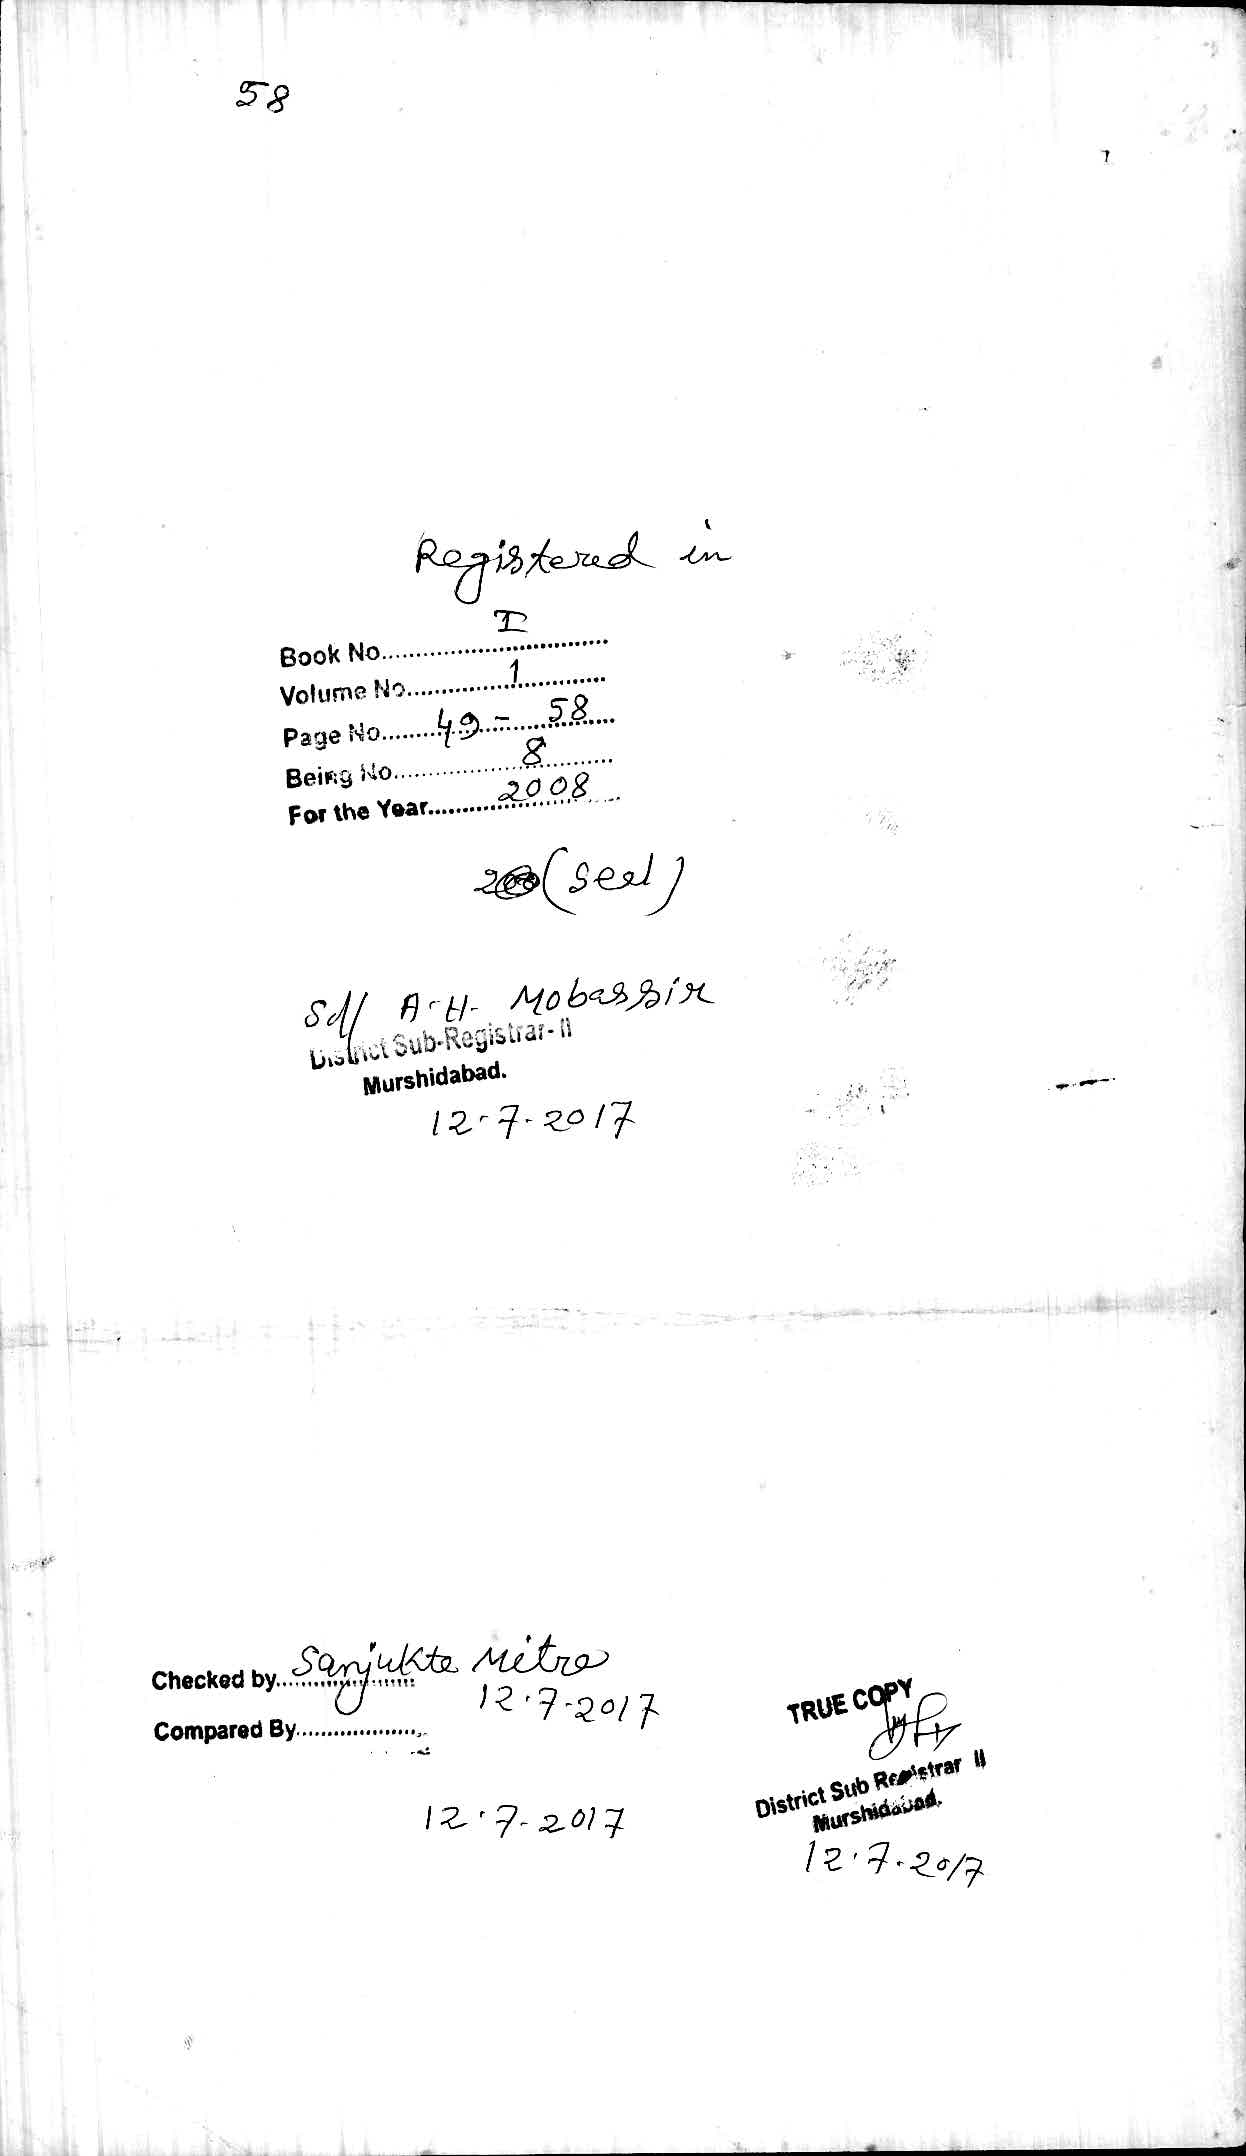 58
Registered in
Book No. I
Volume No. 1
Page No. 49 - 58
Being No. 8
For the Year. 2008
(Seal)
Sd/ A. H. Mobassir
District Sub-Registrar-II
Murshidabad.
12.7.2017
Checked by Sanjukta Mitra
12.7.2017
Compared By
12.7.2017
TRUE COPY
District Sub Registrar II
Murshidabad.
12.7.2017